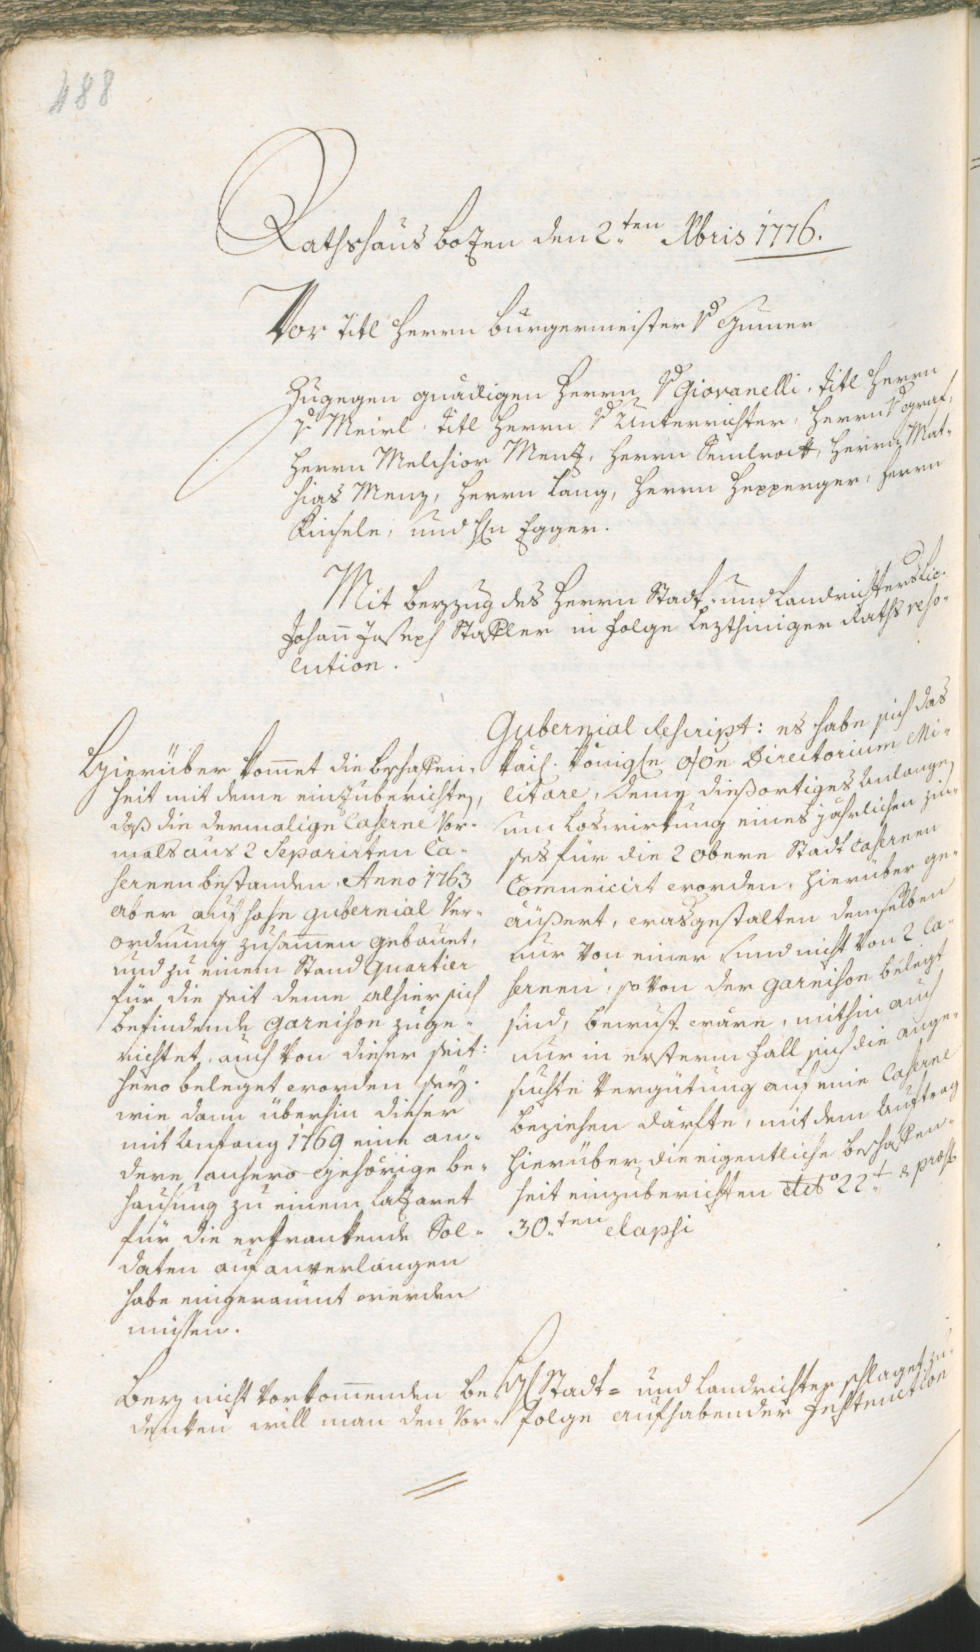 488
Rathshaus Bozen den 2.ten Xbris 1776.
Vor Titl Herrn Burgermeister v Gumer
Zugegen gnädigen Herrn v Giovanelli. Titl Herrn
v Meirl. Titl Herrn v Unterrichter, Herrn v Graf,
Herrn Melchior Menz, Herrn Semlrock, Herrn Mat-
hias Menz, Herrn Lang, Herrn Hepperger, Herrn
Kinsele, und Hn Egger.
Mit Beyzug des Herrn Stadt- und Landrichters Lic.
Johann Joseph Stapler in Folge lezthiniger Raths reso-
lution.
Hierüber kommet die Beschaffen-
heit mit deme einzuberichten,
daß die dermalige Caserne vor-
mals aus 2 Separirten Ca-
sernen bestanden, Anno 1763
aber auf hohe gubernial Ver-
ordnung zusammen gebauet,
und zu einem Stand Quartier
für die seit deme alhier sich
befindende Garnison zuge-
richtet, auch von dieser seit-
hero beleget worden sey.
wie dann überhin dieser
mit Anfang 1769 eine an-
dere anhero gehörige Be-
hausung zu einem Lazaret
für die erkrankende Sol-
daten auf anverlangen
habe eingeraumt werden
müssen.
Gubernial Rescript: es habe sich das
kais. königl. Directorium Mi-
litare, deme diesortiges Anlangen
um Loswirkung eines jährlichen Zin-
ses für die 2 obere Stadt Casernen
Comunicirt worden, hierüber ge-
äußert, wasgestalten demselben
nur von einer und nicht von 2 Ca-
sernen, so von der Garnison belegt
sind, bewust wäre, mithin auch
nur in ersterm Fall sich die ange-
suchte Vergütung auf eine Caserne
beziehen därfte, mit dem Auftrag
hierüber die eigentliche Beschaffen-
heit einzuberichten dto 22.t & praes.
30.ten elapsi
Bey nicht vorkommenden Be-
denken will man den Vor-
H Stadt- und Landrichter schlaget zu-
folge aufhabender Instruction